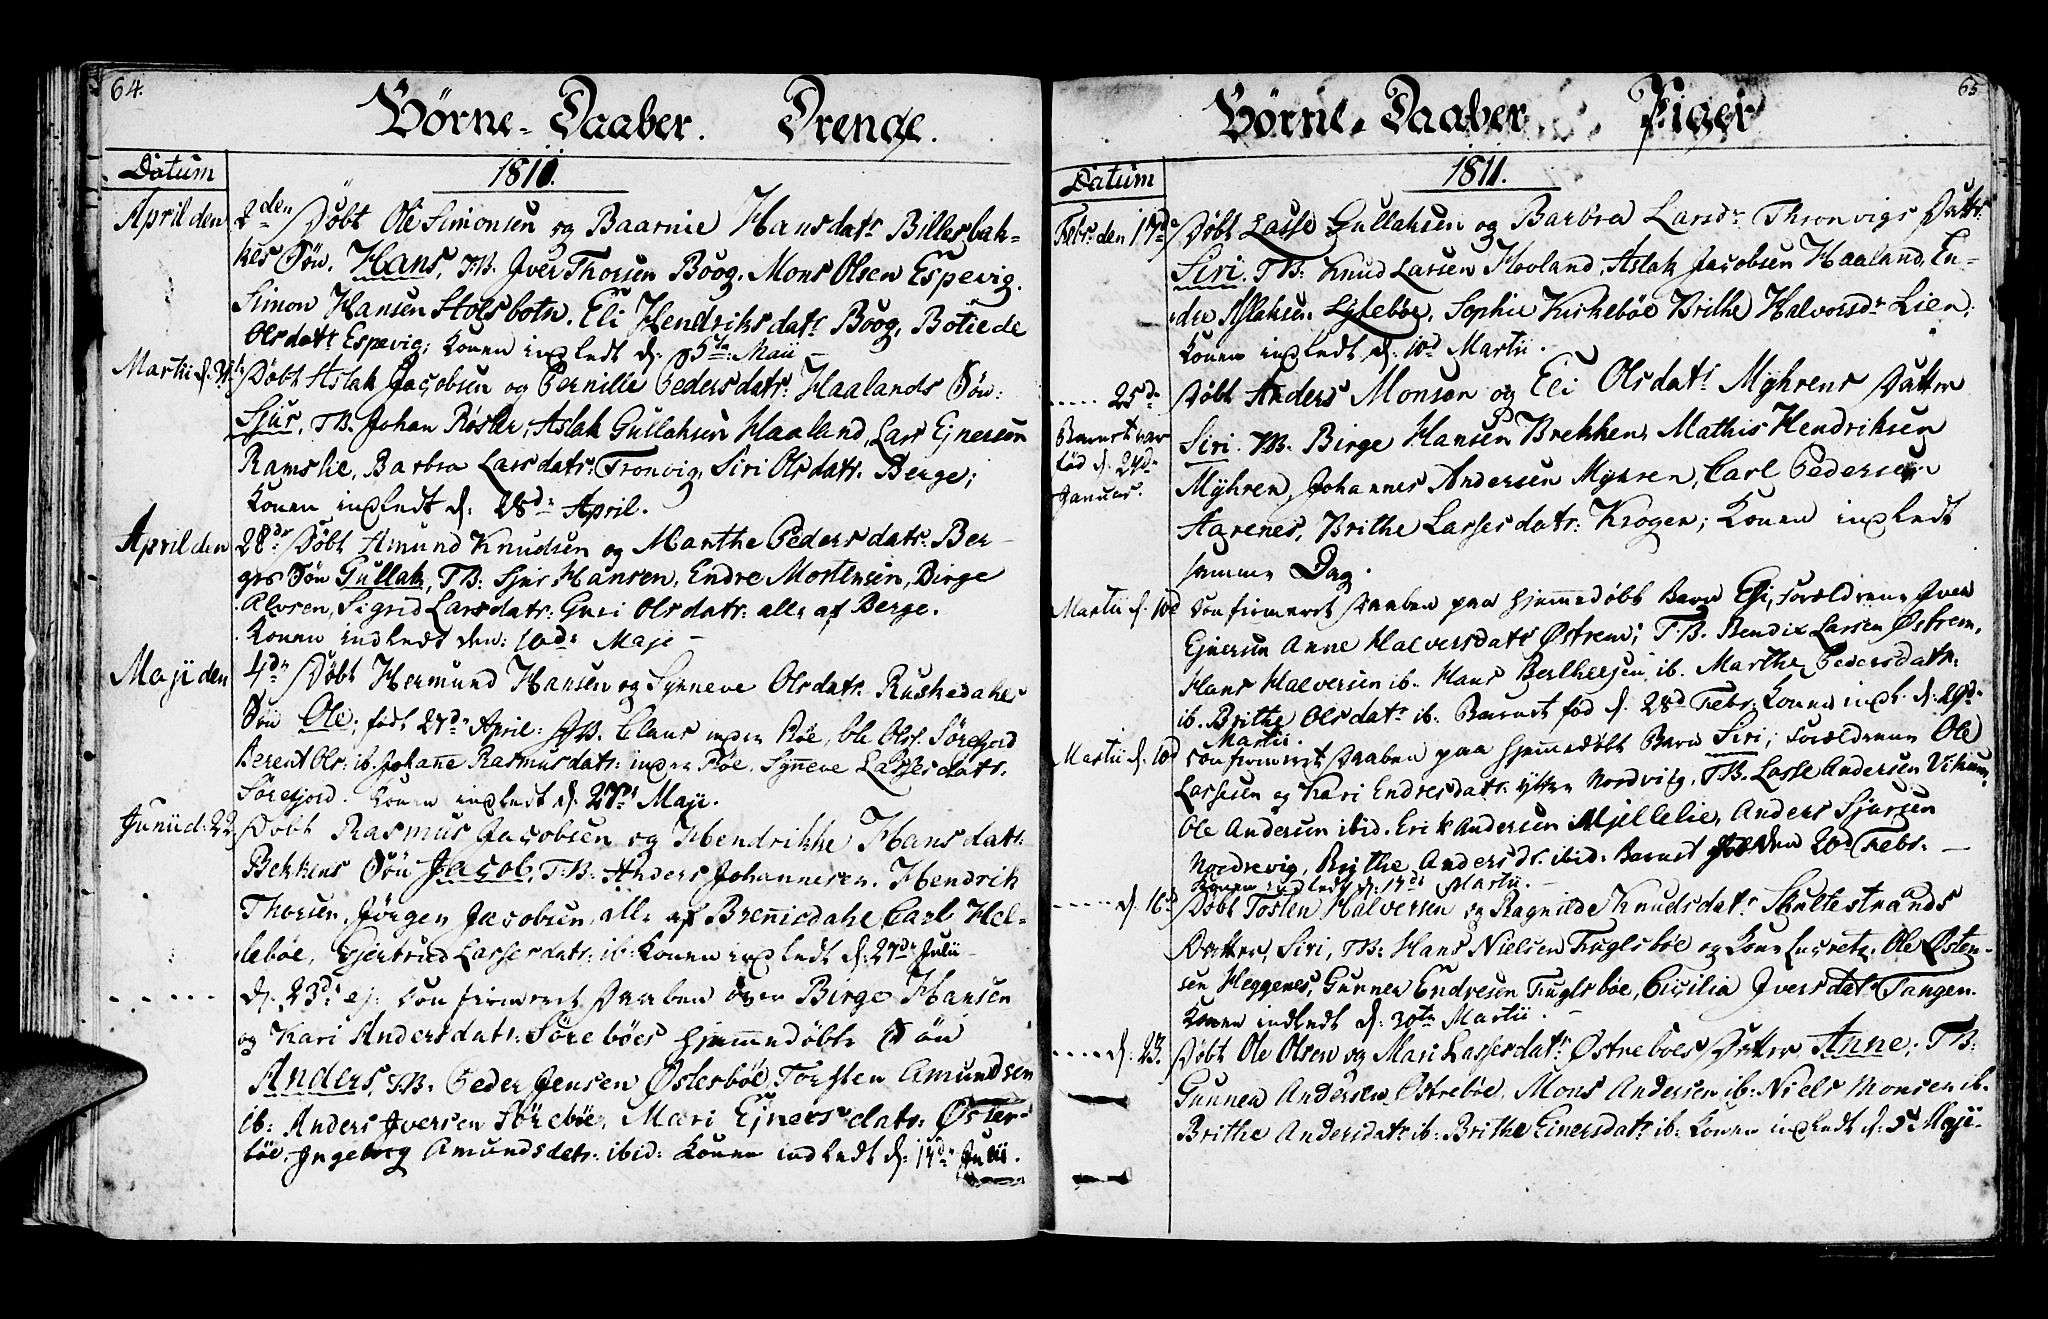 64.
Börne-Daaber. Drenge.
Datum
1811.
April den 2den Döbt Ole Simonsen og Baarnie Hansdatr Billesbak-
kes Sön. Hans, TB. Jver Thorsen Boog. Mons Olsen Espevig.
Simon Hansen Stolsbotn. Eli Hendriksdatr Boog, Botilde
Olsdatr Espevig; Konen indledt d: 5te Maii
Martii d: Döbt Aslak Jacobsen og Pernille Pedersdatr: Haalands Sön:
Sjur, TB. Johan Rösler, Aslak Gullaksen Haaland, Lars Ejnersen
Ramslie, Barbra Larsdatr: Tronvig, Siri Olsdatr: Berge;
Konen indledt d: 28de April.
April den 28de Döbt Amund Knudsen og Marthe Pedersdatr: Ber-
ges Sön Gullak, TB: Sjur Hansen, Endre Mortensen, Birge
Alvsen, Sigrid Larsdatr: Guri Olsdatr: alle af Berge.
Konen indledt den: 10de Maje –
Maji den 4de Döbt Hermund Hansen og Synneve Olsdatr Ruskedahls
Sön Ole; födt 27de April: TB. Claus indre Böe, Ole Ols: Sörefjord
Berent Ols: ib. Johanne Rasmusdatr: indre Böe. Synneve Lassesdatr:
Sörefjord. Konen indledt d. 27de Maje.
Junii d: 22, Döbt Rasmus Jacobsen og Hendrikke Hansdatr:
Bekkens Sön Jacob, TB: Anders Johannesen. Hendrik
Thorsen, Jörgen Jacobsen, alle af Brennisdahl Carl Hel-
leböe, Gjertrud Lassesdatr: ib: Konen indledt d: 27de Julii
. . . . . d. 23de ej: Confirmeret Daaben over Birge Hansen
og Kari Andersdatr: Söreböes hjemmedöbte Sön
Anders, TB. Peder Jensen Österböe, Torsten Amundsen
ib: Anders Jversen Söreböe, Mari Ejnersdatr: Öster-
böe, Jngeborg Amundsdatr: ibid: Konen indledt d: 14de Julii.
65
Börne-Daaber Piger
Datum
1811.
Febr: den 17de Döbt Lasse Gullaksen og Barbra Larsdr Thronvigs Datter
Siri. TB: Knud Larsen Hovland, Aslak Jacobsen Haaland, En-
dre Aslaksen Lysleböe, Sophie Kirkeböe Brithe Halvorsdr Lien;
Konen indledt d: 10d Martii.
. . . . . 25de Döbt Anders Monsen og Eli Olsdatr Myhrens Datter
Barnet var
föd d. 24de
Januar.
Siri. TB. Birge Hansen Brekken, Mathis Hendriksen
Myhren, Johannes Andersen Myhren, Carl Pedersen
Aarenes, Brithe Lassesdatr: Krogen; Konen indledt
samme Dag.
Martii d. 10d Confirmeret Daaben paa hjemmedöbt Barn Eli, Forældrene Jver
Ejnersen Anne Halversdatr Östrem; TB. Bendix Larsen Östrem,
Hans Halversen ib. Hans Berthelsen ib. Marthe Pedersdatr:
ib. Brithe Olsdatr ib: Barnet föd d. 28d Febr: Konen indl. d: 29de
Martii.
Martii d. 10d Confirmeret Daaben paa hjemmedöbt Barn Siri; Forældrene Ole
Lassesen og Kari Endresdatr: ytre Nordvig, TB. Lasse Andersen Vikum,
Ole Andersen ibid. Erik Andersen Mjellelie, Anders Sjursen
Nordrevig, Brithe Andersdr. ibid: Barnet föd den 20d Febr: –
Konen indledt d: 17de Martii. –
. . . . . d. 16d Döbt Tosten Halversen og Ragnilde Knudsdatr Skultestrands
Datter, Siri, TB: Hans Nielsen Fuglsböe og Kone Lucretz. Ole Östen-
sen Heggenes, Gunner Endresen Fuglsböe, Cicilia Jversdatr Tangen.
Konen indledt d: 30te Martii. –
. . . . d. 23. Döbt Ole Olsen og Mari Lassesdatr Östreböes Datter Anne; TB:
Gunner Andersen Östreböe, Mons Andersen ib: Niels Monsen ib.
Brithe Andersdatr ib: Brithe Einersdatr ib: Konen indledt d: 5d Maje.